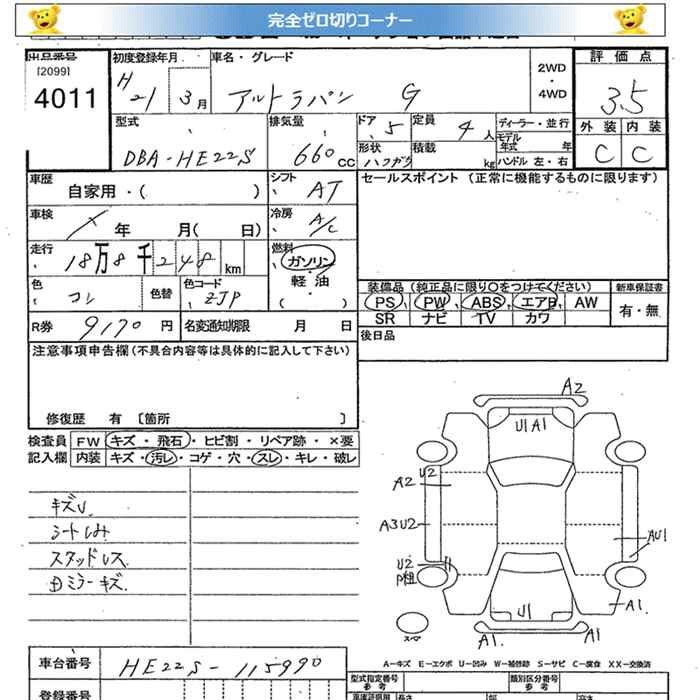 完全ゼロ切りコーナー
出品番号 初度登録年月 車名・グレード 2WD ・ 4WD 評価点
[2099]
4011 H 21 3月 アルトラパン G 3.5
型式 排気量 ドア 5 定員 4人 ディーラー・並行 外装 内装
モデル年式 年
DBA-HE22S 660cc 形状 ハコガタ 積載 kg ハンドル 左・右 C C
車歴 自家用・( ) シフト AT セールスポイント (正常に機能するものに限ります)
車検 年 月( 日) 冷房 A/C
走行 18万8千248km 燃料 ガソリン・軽油・( )
色 コン 色替 色コード ZJP 装備品 (純正品に限り○をつけてください) 新車保証書
PS PW ABS エアB AW 有・無
SR ナビ TV カワ
R券 9170円 名変通知期限 月 日 後日品
注意事項申告欄(不具合内容等は具体的に記入して下さい)
修復歴 有 [箇所 ]
検査員 FW キズ・飛石・ヒビ割・リペア跡・×要
記入欄 内装 キズ・汚レ・コゲ・穴・スレ・キレ・破レ
キズU
シートしみ
スタッドレス
ミラーキズ
A2
U1 A1
U2
A2
A3 U2
AU1
U2
U1
A1.
スペア
A1. A1
A-キズ E-エクボ U-凹み W-補修跡 S-サビ C-腐食 XX-交換済
車台番号 HE22S-115990
型式指定番号 類別区分番号
参考 参考
登録番号